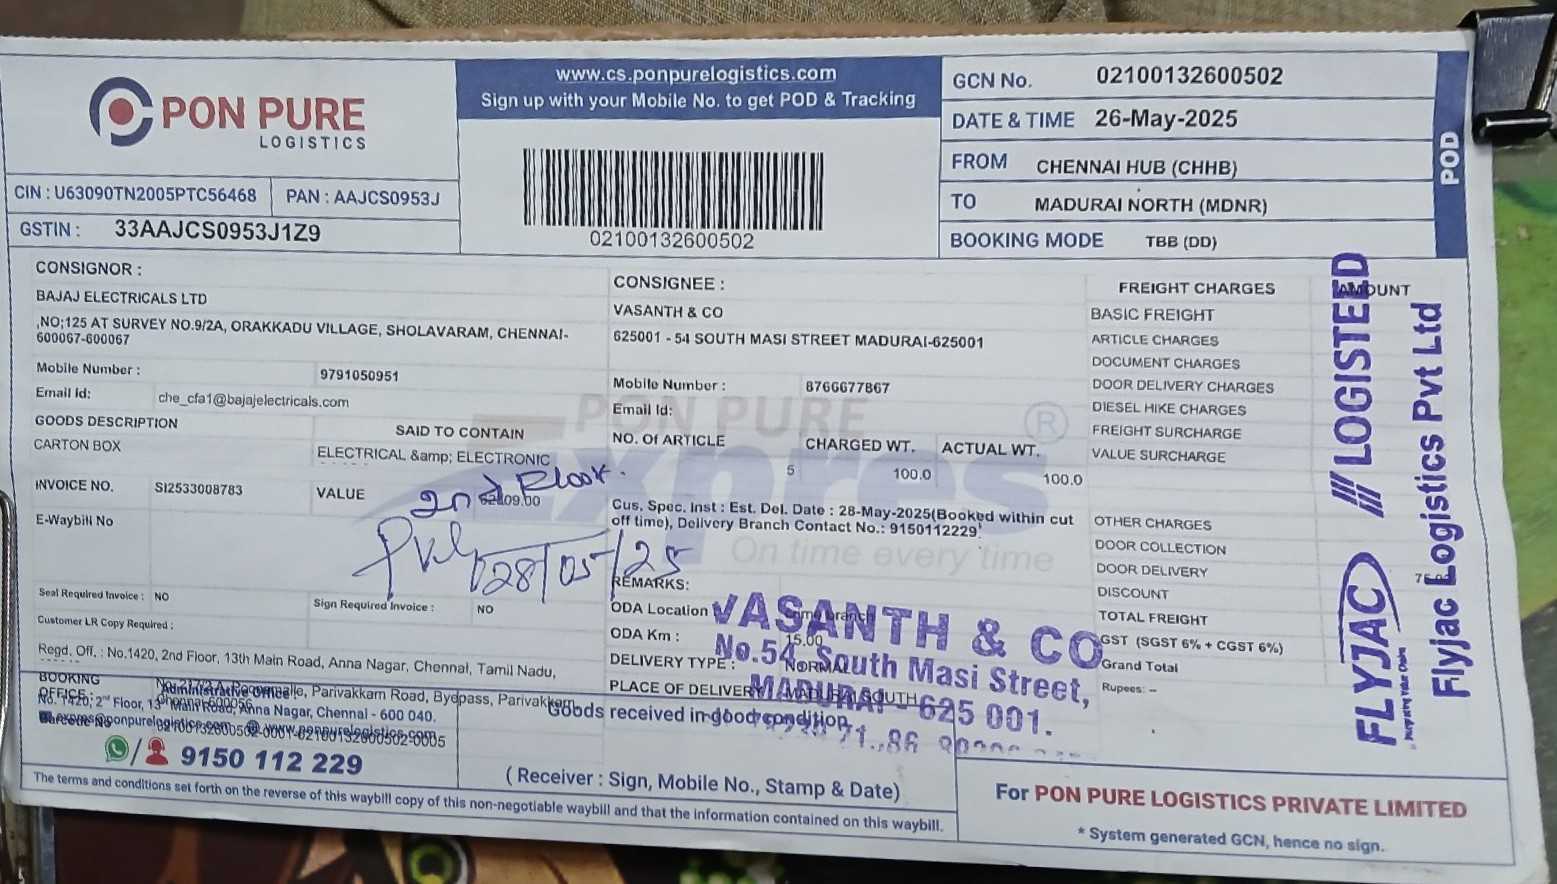 PON PURE
LOGISTICS
CIN : U63090TN2005PTC56468
PAN : AAJCS0953J
GSTIN : 33AAJCS0953J1Z9
www.cs.ponpurelogistics.com
Sign up with your Mobile No. to get POD & Tracking
02100132600502
GCN No. 02100132600502
DATE & TIME 26-May-2025
FROM CHENNAI HUB (CHHB)
TO MADURAI NORTH (MDNR)
BOOKING MODE TBB (DD)
POD
CONSIGNOR :
BAJAJ ELECTRICALS LTD
,NO;125 AT SURVEY NO.9/2A, ORAKKADU VILLAGE, SHOLAVARAM, CHENNAI-
600067-600067
Mobile Number : 9791050951
Email Id: che_cfa1@bajajelectricals.com
GOODS DESCRIPTION SAID TO CONTAIN
CARTON BOX ELECTRICAL &amp; ELECTRONIC
INVOICE NO. SI2533008783 VALUE
2nd Floor.
E-Waybill No
28/05/25
Seal Required Invoice : NO
Sign Required Invoice : NO
Customer LR Copy Required :
Regd. Off. : No.1420, 2nd Floor, 13th Main Road, Anna Nagar, Chennai, Tamil Nadu,
CONSIGNEE :
VASANTH & CO
625001 - 54 SOUTH MASI STREET MADURAI-625001
Mobile Number : 8766677867
Email Id:
PON PURE
Expres
®
On time every time
NO. Of ARTICLE CHARGED WT. ACTUAL WT.
5 100.0 100.0
Cus. Spec. Inst : Est. Del. Date : 28-May-2025(Booked within cut
off time), Delivery Branch Contact No.: 9150112229
REMARKS:
ODA Location
ODA Km : 15.00
DELIVERY TYPE : NORMAL
PLACE OF DELIVERY MADURAI SOUTH
VASANTH & CO
No.54, South Masi Street,
MADURAI - 625 001.
FREIGHT CHARGES AMOUNT
BASIC FREIGHT
ARTICLE CHARGES
DOCUMENT CHARGES
DOOR DELIVERY CHARGES
DIESEL HIKE CHARGES
FREIGHT SURCHARGE
VALUE SURCHARGE
OTHER CHARGES
DOOR COLLECTION
DOOR DELIVERY
DISCOUNT
TOTAL FREIGHT
GST (SGST 6% + CGST 6%)
Grand Total
Rupees: –
LOGISTEED
FLYJAC
Flyjac Logistics Pvt Ltd
BOOKING
OFFICE :
Administrative Office :
Parivakkam Road, Byepass, Parivakkam,
No. 1420, 2nd Floor, 13th Main Road, Anna Nagar, Chennai - 600 040.
Barcode No 02100132600502-0001-02100132600502-0005
9150 112 229
Goods received in good condition
(Receiver : Sign, Mobile No., Stamp & Date)
The terms and conditions set forth on the reverse of this waybill copy of this non-negotiable waybill and that the information contained on this waybill.
For PON PURE LOGISTICS PRIVATE LIMITED
* System generated GCN, hence no sign.